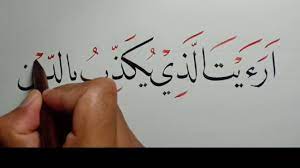 اَرَءَيْتَ الَّذِي يُكَذِّبُ بِالدِّيْن